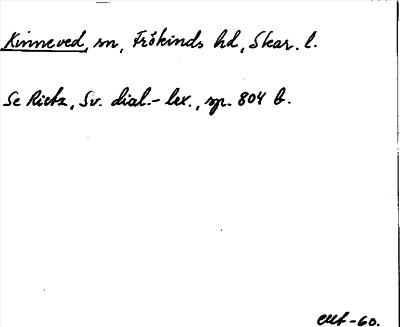 Kinneved, sn, Frökinds hd, Skar. l.
Se Rietz, Sv. dial.-lex., sp. 804 b.
-60.